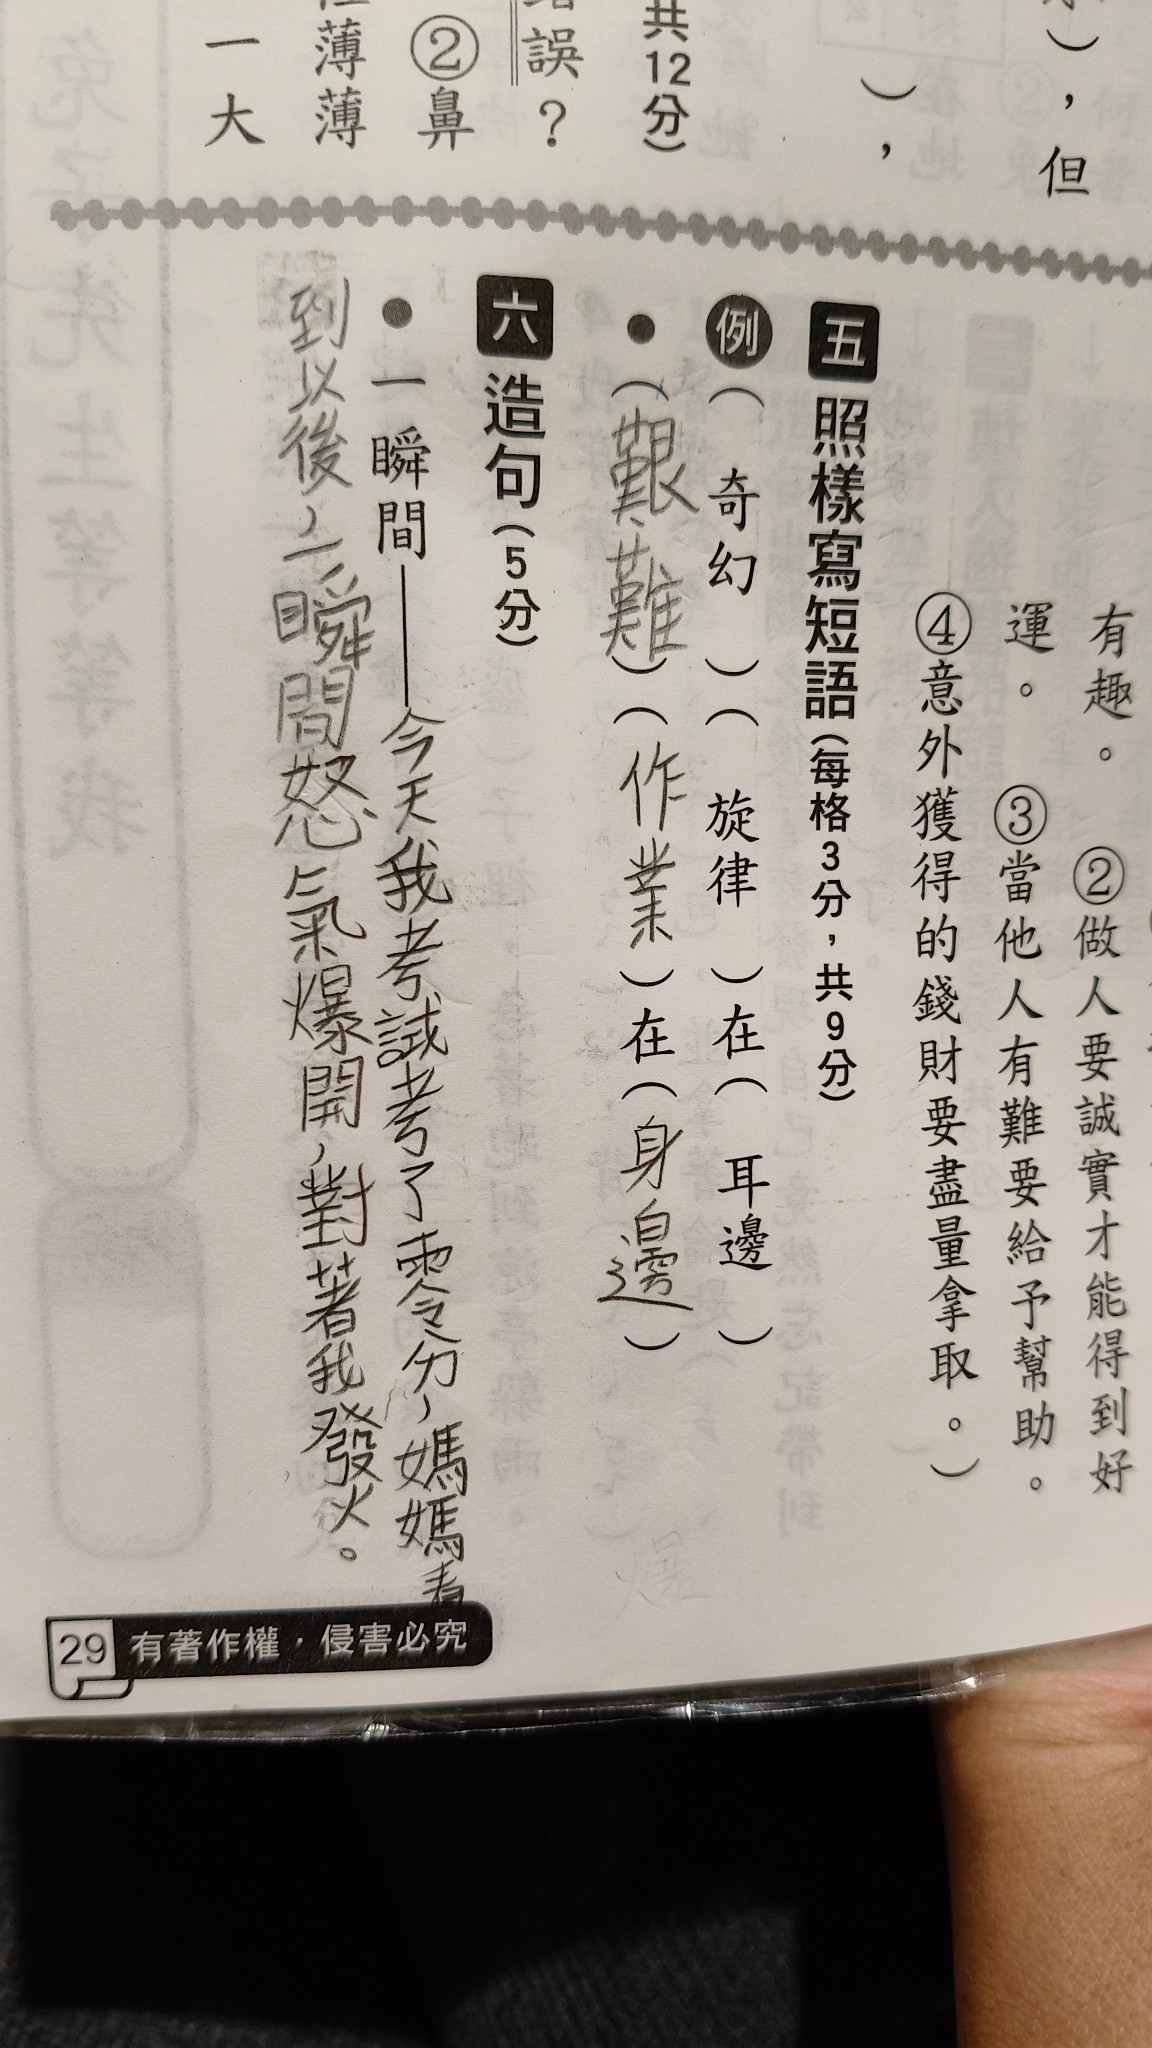 ），但
），
共12分）
誤？
②鼻
薄薄
一大
有趣。　②做人要誠實才能得到好
運。　③當他人有難要給予幫助。
④意外獲得的錢財要盡量拿取。）
五 照樣寫短語（每格3分，共9分）
例（奇幻）（旋律）在（耳邊）
●（艱難）（作業）在（身邊）
六 造句（5分）
●一瞬間——今天我考試考了零分，媽媽看
到以後，一瞬間怒氣爆開，對著我發火。
爆
29 有著作權・侵害必究